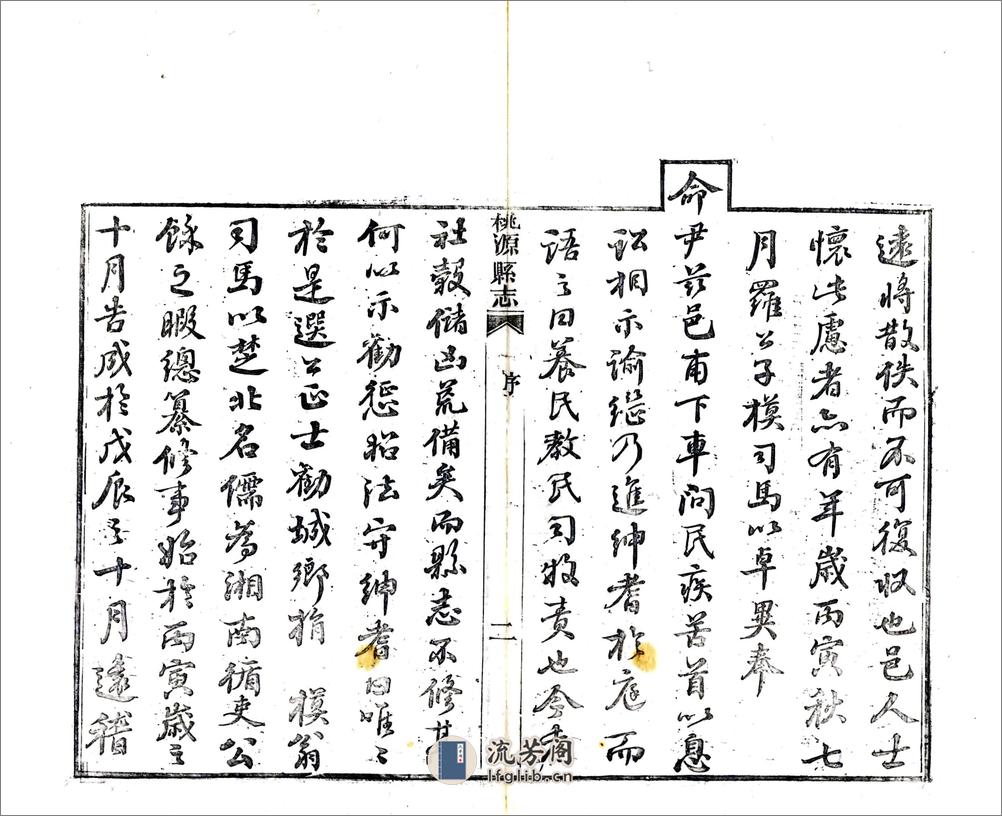 遠將散佚而不可復収也邑人士
懷此慮者亦有年歲丙寅秋七
月羅公子模司馬以卓異奉
命尹茲邑甫下車問民疾苦首以息
訟相示諭繼乃進紳耆於庭而
語之曰養民教民司牧責也今
桃源縣志
序
二
社穀儲凶荒備矣而縣志不修其
何以示勸懲昭法守紳耆曰唯〻
於是選公正士勸城鄉捐 模翁
司馬以楚北名儒為湘南循吏公
餘之暇總纂修事始於丙寅歲之
十月告成於戊辰之十月遠稽
流芳阁
lfglib.cn